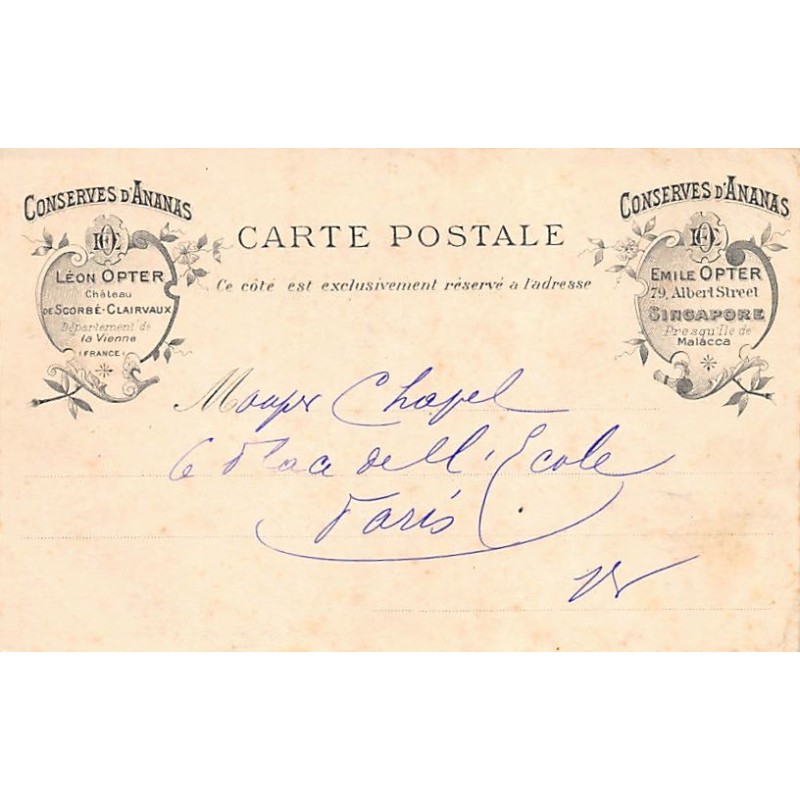 CONSERVES D'ANANAS
LÉON OPTER
Château
DE SCORBÉ-CLAIRVAUX
Département de
la Vienne
(FRANCE)
CARTE POSTALE
Ce côté est exclusivement réservé a l'adresse
CONSERVES D'ANANAS
EMILE OPTER
79, Albert Street
SINGAPORE
Presqu'île de
Malacca
Chapel
6 Place de l'Ecole
Paris